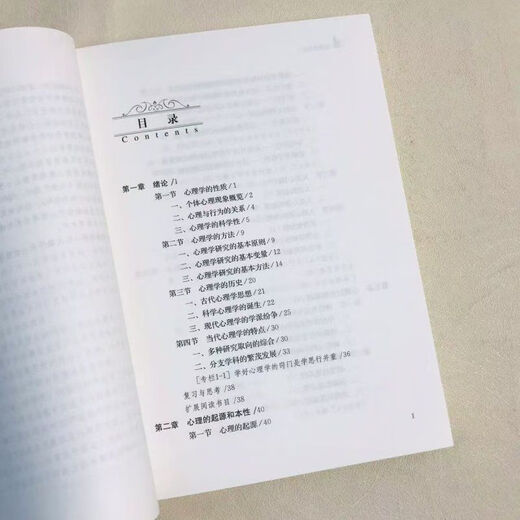 目 录
Contents
第一章 绪论 /1
第一节 心理学的性质 /1
一、个体心理现象概览 /2
二、心理与行为的关系 /4
三、心理学的科学性 /5
第二节 心理学的方法 /9
一、心理学研究的基本原则 /9
二、心理学研究的基本变量 /12
三、心理学研究的基本方法 /14
第三节 心理学的历史 /20
一、古代心理学思想 /21
二、科学心理学的诞生 /22
三、现代心理学的学派纷争 /25
第四节 当代心理学的特点 /30
一、多种研究取向的综合 /30
二、分支学科的繁茂发展 /33
[专栏1-1] 学好心理学的窍门是学思行并重 /36
复习与思考 /38
扩展阅读书目 /38
第二章 心理的起源和本性 /40
第一节 心理的起源 /40
1